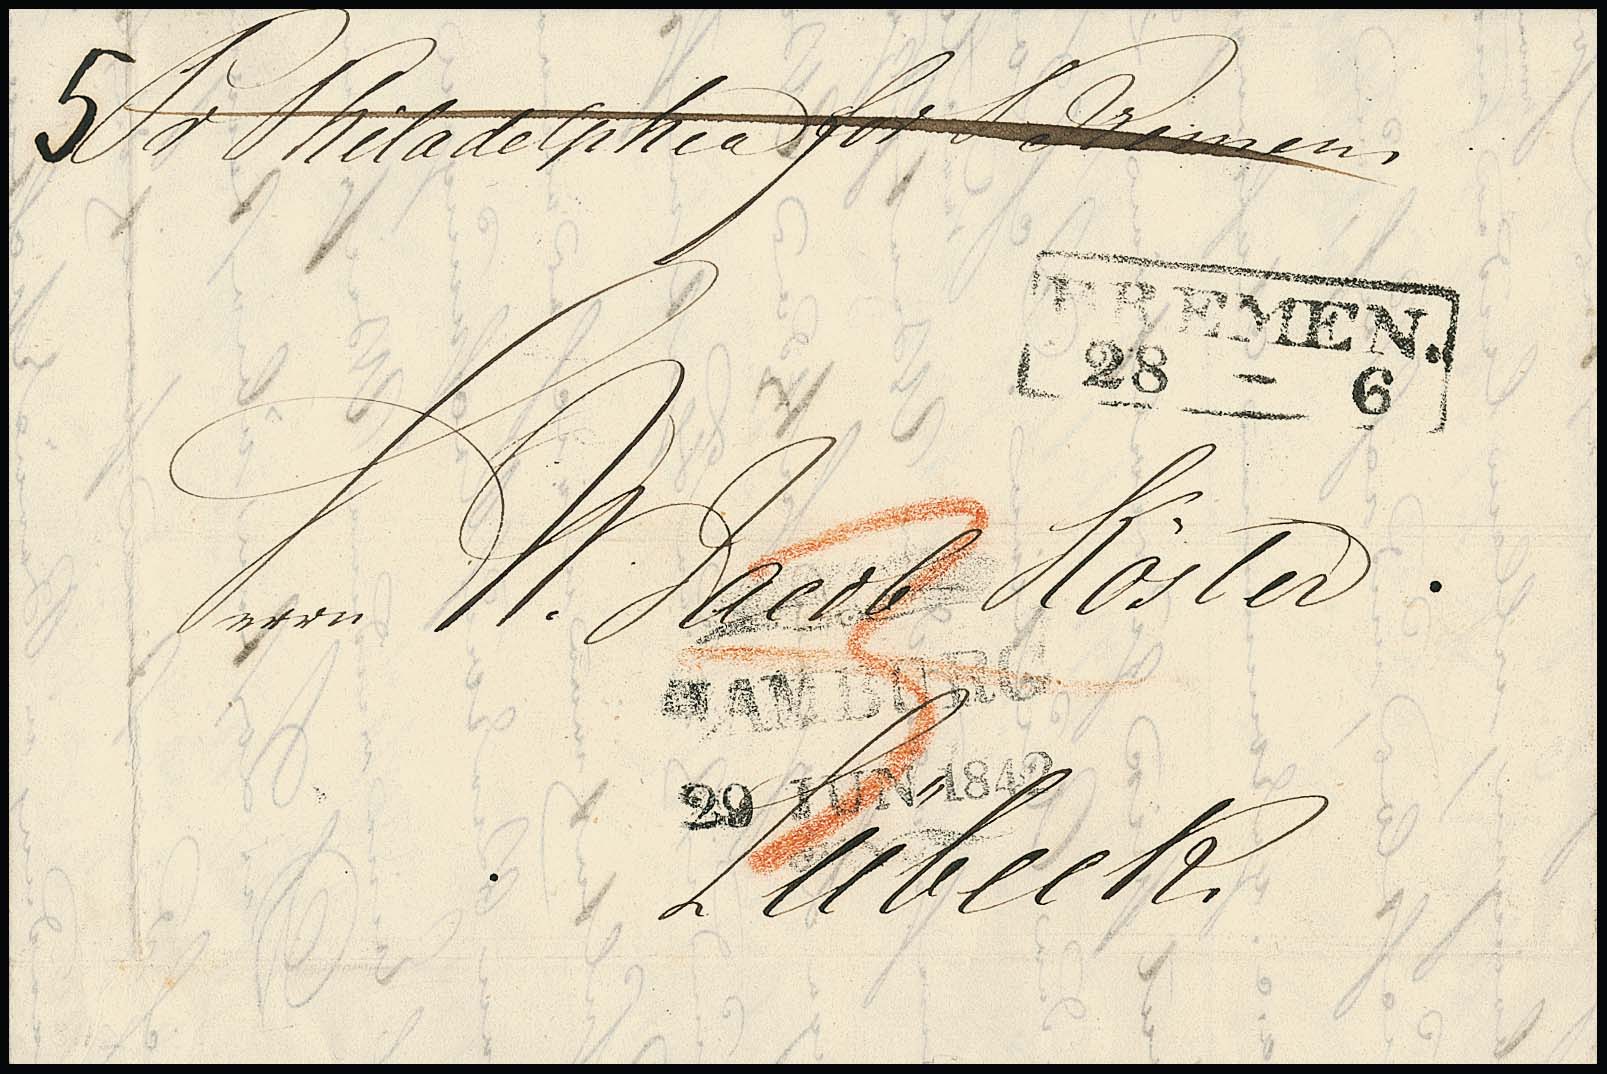 5 Pr Philadelphia for Bremen
BREMEN.
28 – 6
Herrn W. Jacob Köster.
HAMBURG
29 JUN 1842
3
Lübeck.